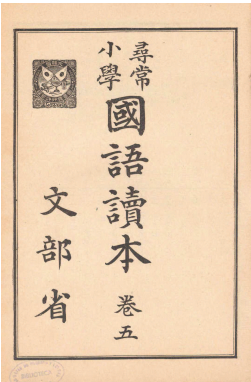 尋常
小學
國語讀本 卷五
文部省